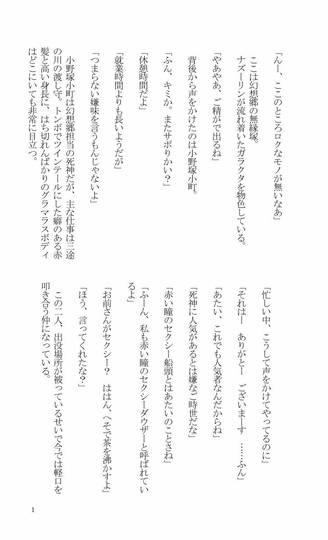 「んー、ここのところロクなモノが無いなあ」
ここは幻想郷の無縁塚。
ナズーリンが流れ着いたガラクタを物色している。
「やあやあ、ご精がで出るね」
背後から声をかけたのは小野塚小町。
「ふん、キミか。またサボりかい？」
「休憩時間だよ」
「就業時間よりも長いようだが」
「つまらない嫌味を言うもんじゃないよ」
小野塚小町は幻想郷担当の死神だが、主な仕事は三途
の川の渡し守。トンボでツインテールにした癖のある赤
髪と高い身長に、はち切れんばかりのグラマラスボディ
はどこにいても非常に目立つ。
「忙しい中、こうして声をかけてやってるのに」
「それはー　ありがとー　ございまーす　……ふん」
「あたい、これでも人気者なんだからね」
「死神に人気があるとは嫌なご時世だな」
「赤い瞳のセクシー船頭とはあたいのことさね」
「ふーん、私も赤い瞳のセクシーダウザーと呼ばれてい
るよ」
「お前さんがセクシー？　ははん、へそで茶を沸かすよ」
「ほう、言ってくれたな？」
この二人、出没場所が被っているせいで今では軽口を
叩き合う仲になっている。
1